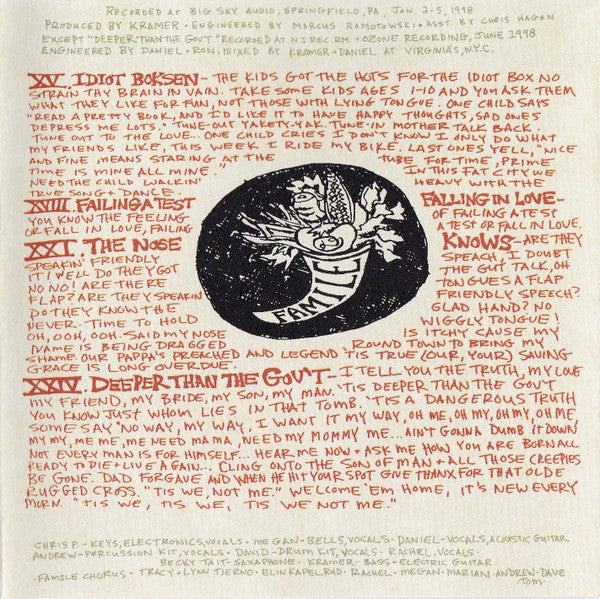 RECORDED AT BIG SKY AUDIO, SPRINGFIELD, PA, JAN 2-5, 1998
PRODUCED BY KRAMER · ENGINEERED BY MARCUS RAMOTOWSKI · ASST. BY CHRIS HAGAN
EXCEPT "DEEPER THAN THE GOV'T" RECORDED AT N.J. REC. RM. + OZONE RECORDING, JUNE 1998
ENGINEERED BY DANIEL + RON. MIXED BY KRAMER + DANIEL AT VIRGINIA'S, N.Y.C.
XV. IDIOT BOKSEN - THE KIDS GOT THE HOTS FOR THE IDIOT BOX NO
STRAIN THY BRAIN IN VAIN. TAKE SOME KIDS AGES 1-10 AND YOU ASK THEM
WHAT THEY LIKE FOR FUN, NOT THOSE WITH LYING TONGUE. ONE CHILD SAYS
"READ A PRETTY BOOK, AND I'D LIKE IT TO HAVE HAPPY THOUGHTS, SAD ONES
DEPRESS ME LOTS." TUNE-OUT YAKETY-YAK. TUNE-IN MOTHER TALK BACK.
TUNE OUT TO THE LOVE. ONE CHILD CRIES "I DON'T KNOW I ONLY DO WHAT
MY FRIENDS LIKE, THIS WEEK I RIDE MY BIKE. LAST ONES YELL, "NICE
AND FINE MEANS STARING AT THE TUBE FOR TIME, PRIME
TIME IS MINE ALL MINE." IN THIS FAT CITY WE
NEED THE CHILD WALKIN' HEAVY WITH THE
TRUE SONG + DANCE.
XVIII FAILING A TEST FALLING IN LOVE -
YOU KNOW THE FEELING OF FAILING A TEST
OR FALL IN LOVE, FAILING A TEST OR FALL IN LOVE.
XXI. THE NOSE KNOWS - ARE THEY
SPEAKIN' FRIENDLY SPEACH, I DOUBT
IT! WELL DO THEY GOT THE GUT TALK, OH
NO NO! ARE THERE TONGUES A FLAP
FLAP? ARE THEY SPEAKIN FRIENDLY SPEECH?
DO THEY KNOW THE GLAD HAND? NO
NEVER. TIME TO HOLD WIGGLY TONGUE!
OH, OOH, OOH SAID MY NOSE IS ITCHY CAUSE MY
NAME IS BEING DRAGGED ROUND TOWN TO BRING MY
SHAME. OUR PAPPA'S PREACHED AND LEGEND 'TIS TRUE (OUR, YOUR) SAVING
GRACE IS LONG OVERDUE.
XXIV. DEEPER THAN THE GOV'T - I TELL YOU THE TRUTH, MY LOVE
MY FRIEND, MY BRIDE, MY SON, MY MAN. 'TIS DEEPER THAN THE GOVT
YOU KNOW JUST WHOM LIES IN THAT TOMB. 'TIS A DANGEROUS TRUTH
SOME SAY "NO WAY, MY WAY, I WANT IT MY WAY, OH ME, OH MY, OH MY, OH ME
MY MY, ME ME, ME NEED MAMA, NEED MY MOMMY ME... AIN'T GONNA DUMB IT DOWN
NOT EVERY MAN IS FOR HIMSELF... HEAR ME NOW + ASK ME HOW YOU ARE BORN ALL
READY TO DIE + LIVE AGAIN... CLING ONTO THE SON OF MAN + ALL THOSE CREEPIES
BE GONE. DAD FORGAVE AND WHEN HE HIT YOUR SPOT GIVE THANX FOR THAT OLDE
RUGGED CROSS. "TIS WE, NOT ME." WELCOME 'EM HOME, IT'S NEW EVERY
MORN. "TIS WE, TIS WE, TIS WE NOT ME."
FAMILE
CHRIS P. - KEYS, ELECTRONICS, VOCALS · MEGAN - BELLS, VOCALS · DANIEL - VOCALS, ACOUSTIC GUITAR
ANDREW - PERCUSSION KIT, VOCALS · DAVID - DRUM KIT, VOCALS · RACHEL, VOCALS ·
BECKY TAIT - SAXAPHONE · KRAMER - BASS + ELECTRIC GUITAR
· FAMILE CHORUS - TRACY + LYNN TIERNO · ELIN KAPELRUD · RACHEL · MEGAN · MARIAN · ANDREW · DAVE
TOM ·